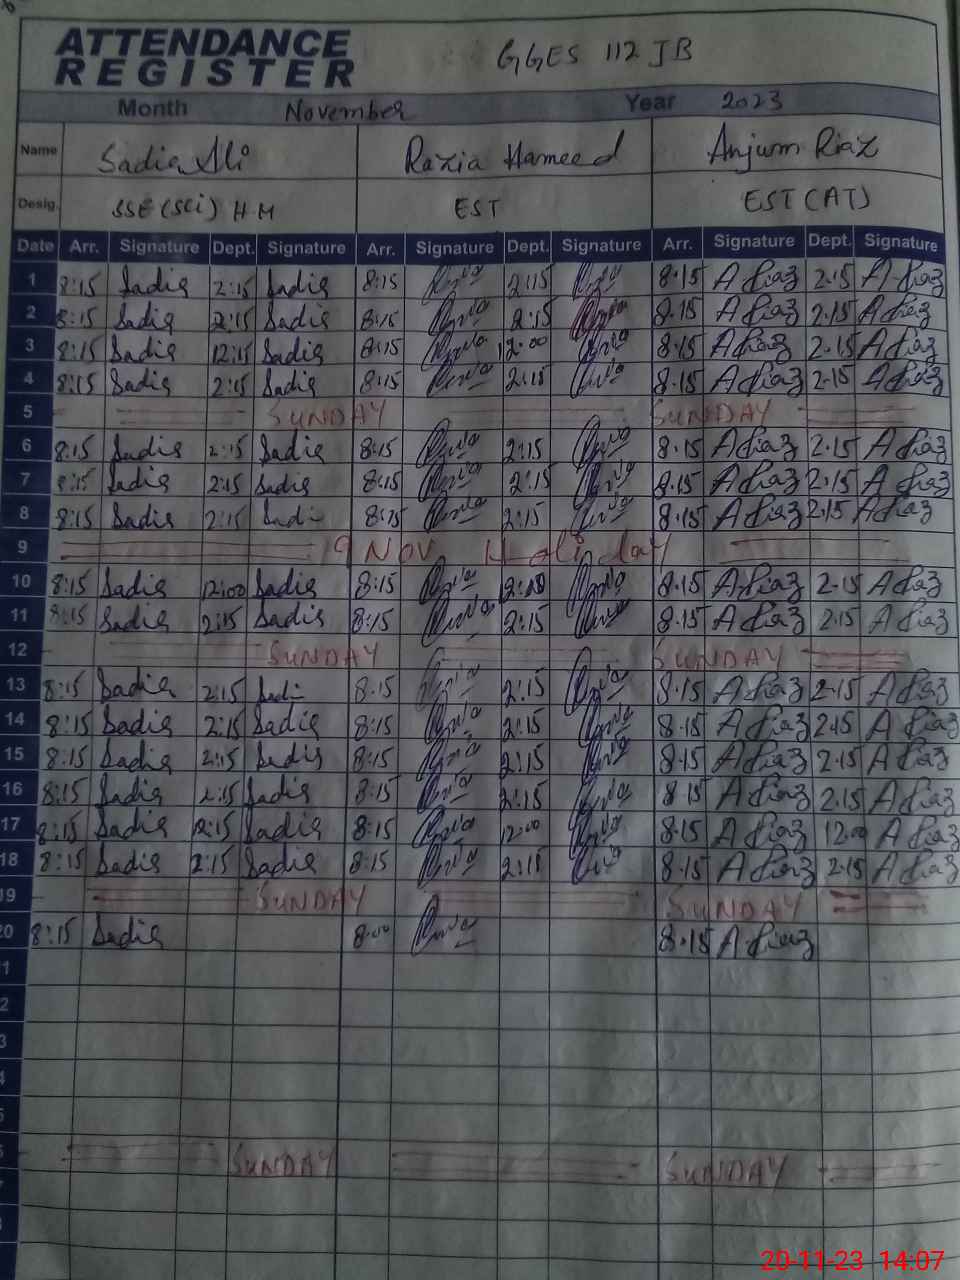 ATTENDANCE
REGISTER
GGES 112 JB
Month November Year 2023
Name Sadia Ali Razia Hameed Anjum Riaz
Desig. SSE (Sci) H.M EST EST (AT)
Date Arr. Signature Dept. Signature Arr. Signature Dept. Signature Arr. Signature Dept. Signature
1 8:15 Sadia 2:15 Sadia 8:15 2:15 8.15 A Riaz 2.15 A Riaz
2 8:15 Sadia 2:15 Sadia 8:15 2:15 8.15 A Riaz 2.15 A Riaz
3 8:15 Sadia 12:15 Sadia 8:15 12:00 8.15 A Riaz 2.15 A Riaz
4 8:15 Sadia 2:15 Sadia 8:15 2:15 8.15 A Riaz 2.15 A Riaz
5 SUNDAY SUNDAY
6 8:15 Sadia 2:15 Sadia 8:15 2:15 8.15 A Riaz 2.15 A Riaz
7 8:15 Sadia 2:15 Sadia 8:15 2:15 8.15 A Riaz 2.15 A Riaz
8 8:15 Sadia 2:15 Sadia 8:15 2:15 8.15 A Riaz 2.15 A Riaz
9 9 NOV Holiday
10 8:15 Sadia 12:00 Sadia 8:15 12:00 8.15 A Riaz 2.15 A Riaz
11 8:15 Sadia 2:15 Sadia 8:15 2:15 8.15 A Riaz 2.15 A Riaz
12 SUNDAY SUNDAY
13 8:15 Sadia 2:15 Sadia 8.15 2:15 8.15 A Riaz 2.15 A Riaz
14 8:15 Sadia 2:15 Sadia 8:15 2:15 8.15 A Riaz 2.15 A Riaz
15 8:15 Sadia 2:15 Sadia 8:15 2:15 8.15 A Riaz 2.15 A Riaz
16 8:15 Sadia 2:15 Sadia 8:15 2:15 8.15 A Riaz 2.15 A Riaz
17 8:15 Sadia 12:15 Sadia 8:15 12:00 8.15 A Riaz 12.00 A Riaz
18 8:15 Sadia 2:15 Sadia 8:15 2:15 8.15 A Riaz 2.15 A Riaz
19 SUNDAY SUNDAY
20 8:15 Sadia 8:00 8.15 A Riaz
1
2
3
4
5
SUNDAY SUNDAY
20-11-23 14:07